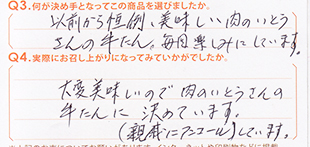 Q3.何が決め手となってこの商品を選びましたか。
以前から恒例、美味しい肉のいとう
さんの牛たん。毎回楽しみにしています。
Q4.実際にお召し上がりになってみていかがでしたか。
大変美味しいので肉のいとうさんの
牛たんに決めています。
(親戚にアンコール)しています。